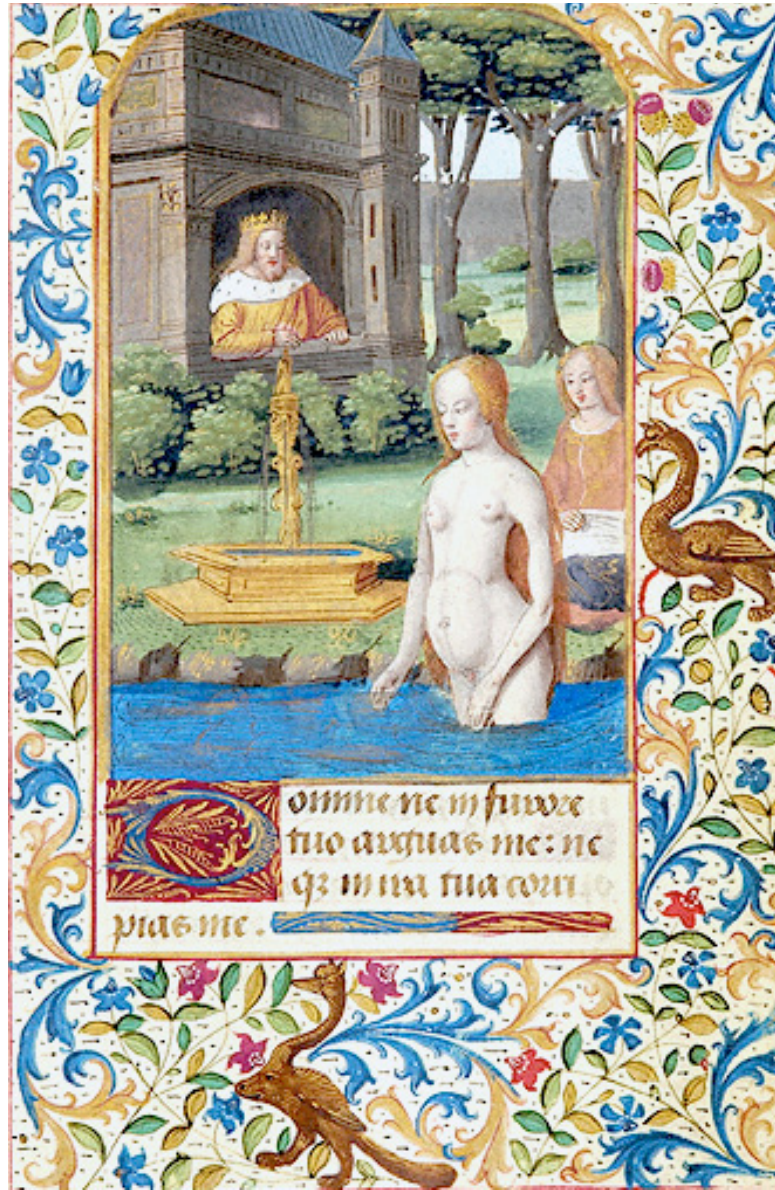 Domine ne in furore
tuo arguas me: ne
qz in ira tua corri
pias me.